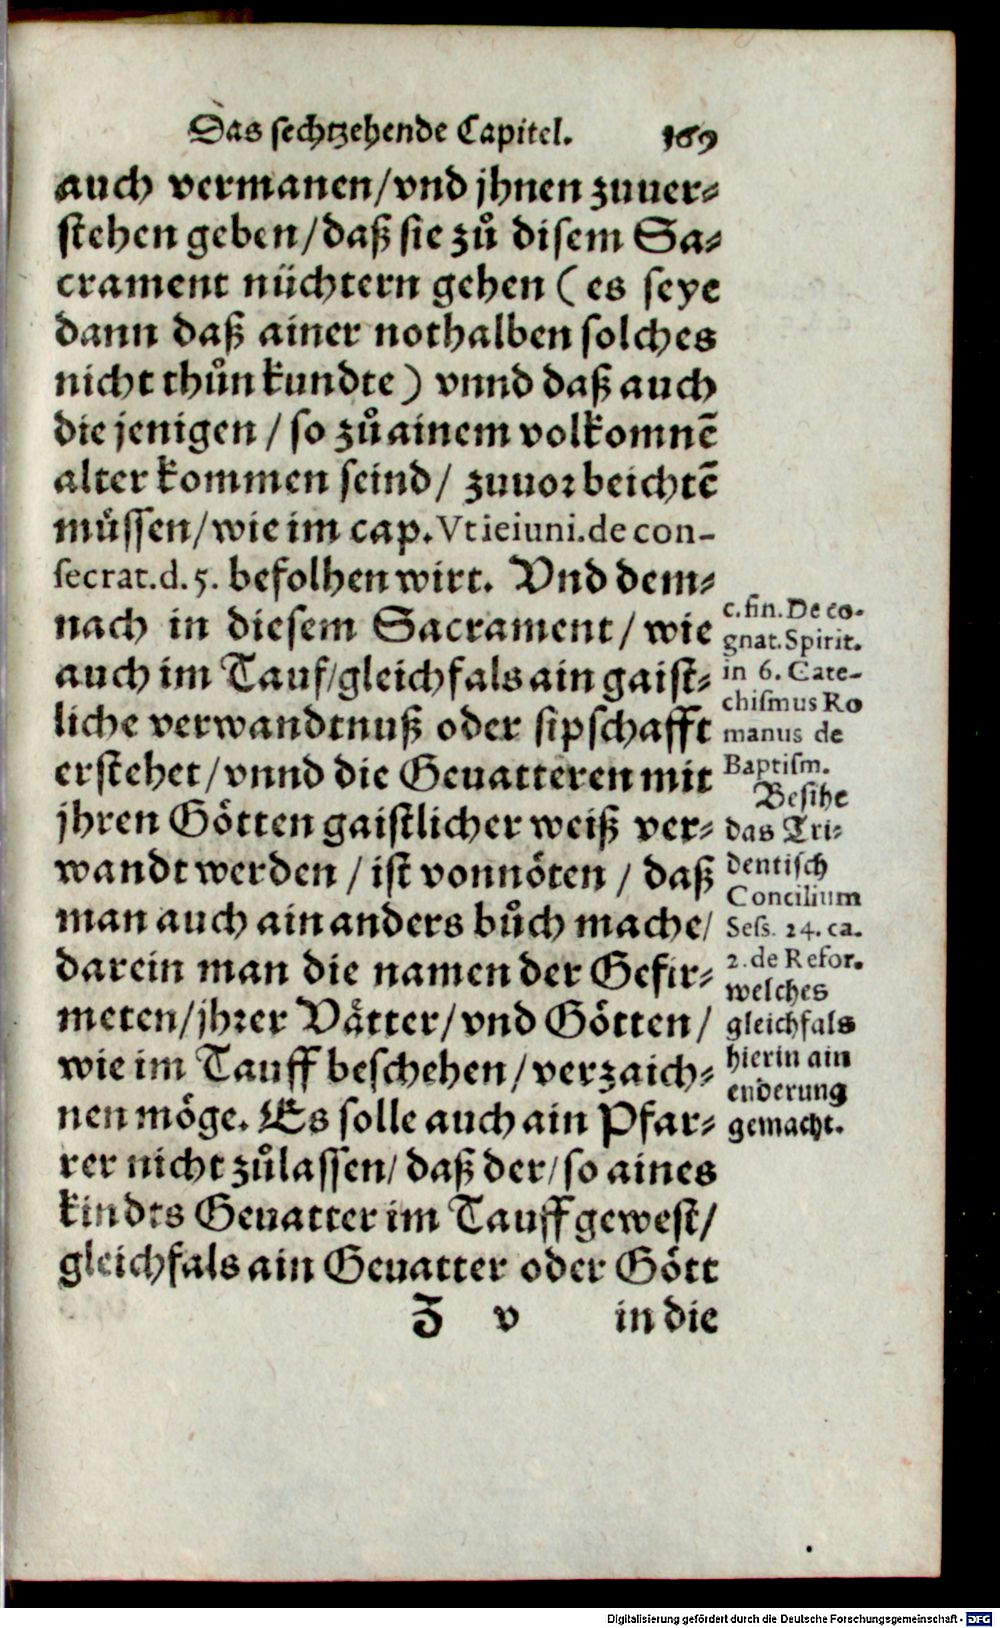 Das sechtzehende Capitel. 169
auch vermanen/vnd jhnen zuuer⸗
stehen geben/daß sie zů disem Sa⸗
crament nüchtern gehen (es seye
dann daß ainer nothalben solches
nicht thůn kundte) vnnd daß auch
die jenigen / so zů ainem volkomnẽ
alter kommen seind / zuuor beichtẽ
můssen/wie im cap. Vt ieiuni. de con-
secrat. d. 5. befolhen wirt. Vnd dem⸗
nach in diesem Sacrament / wie
auch im Tauf/gleichfals ain gaist⸗
liche verwandtnuß oder sipschafft
erstehet/vnnd die Geuatteren mit
jhren Götten gaistlicher weiß ver⸗
wandt werden / ist vonnöten / daß
man auch ain anders bůch mache/
darein man die namen der Gefir⸗
meten/jhrer Vätter/vnd Götten /
wie im Tauff beschehen/verzaich⸗
nen möge. Es solle auch ain Pfar⸗
rer nicht zůlassen/ daß der/so aines
kindts Geuatter im Tauff gewest/
gleichfals ain Geuatter oder Gött
Z v in die
c. fin. De co-
gnat. Spirit.
in 6. Cate-
chismus Ro
manus de
Baptism.
Besihe
das Tri⸗
dentisch
Concilium
Sess. 24. ca.
2. de Refor.
welches
gleichfals
hierin ain
enderung
gemacht.
Digitalisierung gefördert durch die Deutsche Forschungsgemeinschaft - DFG